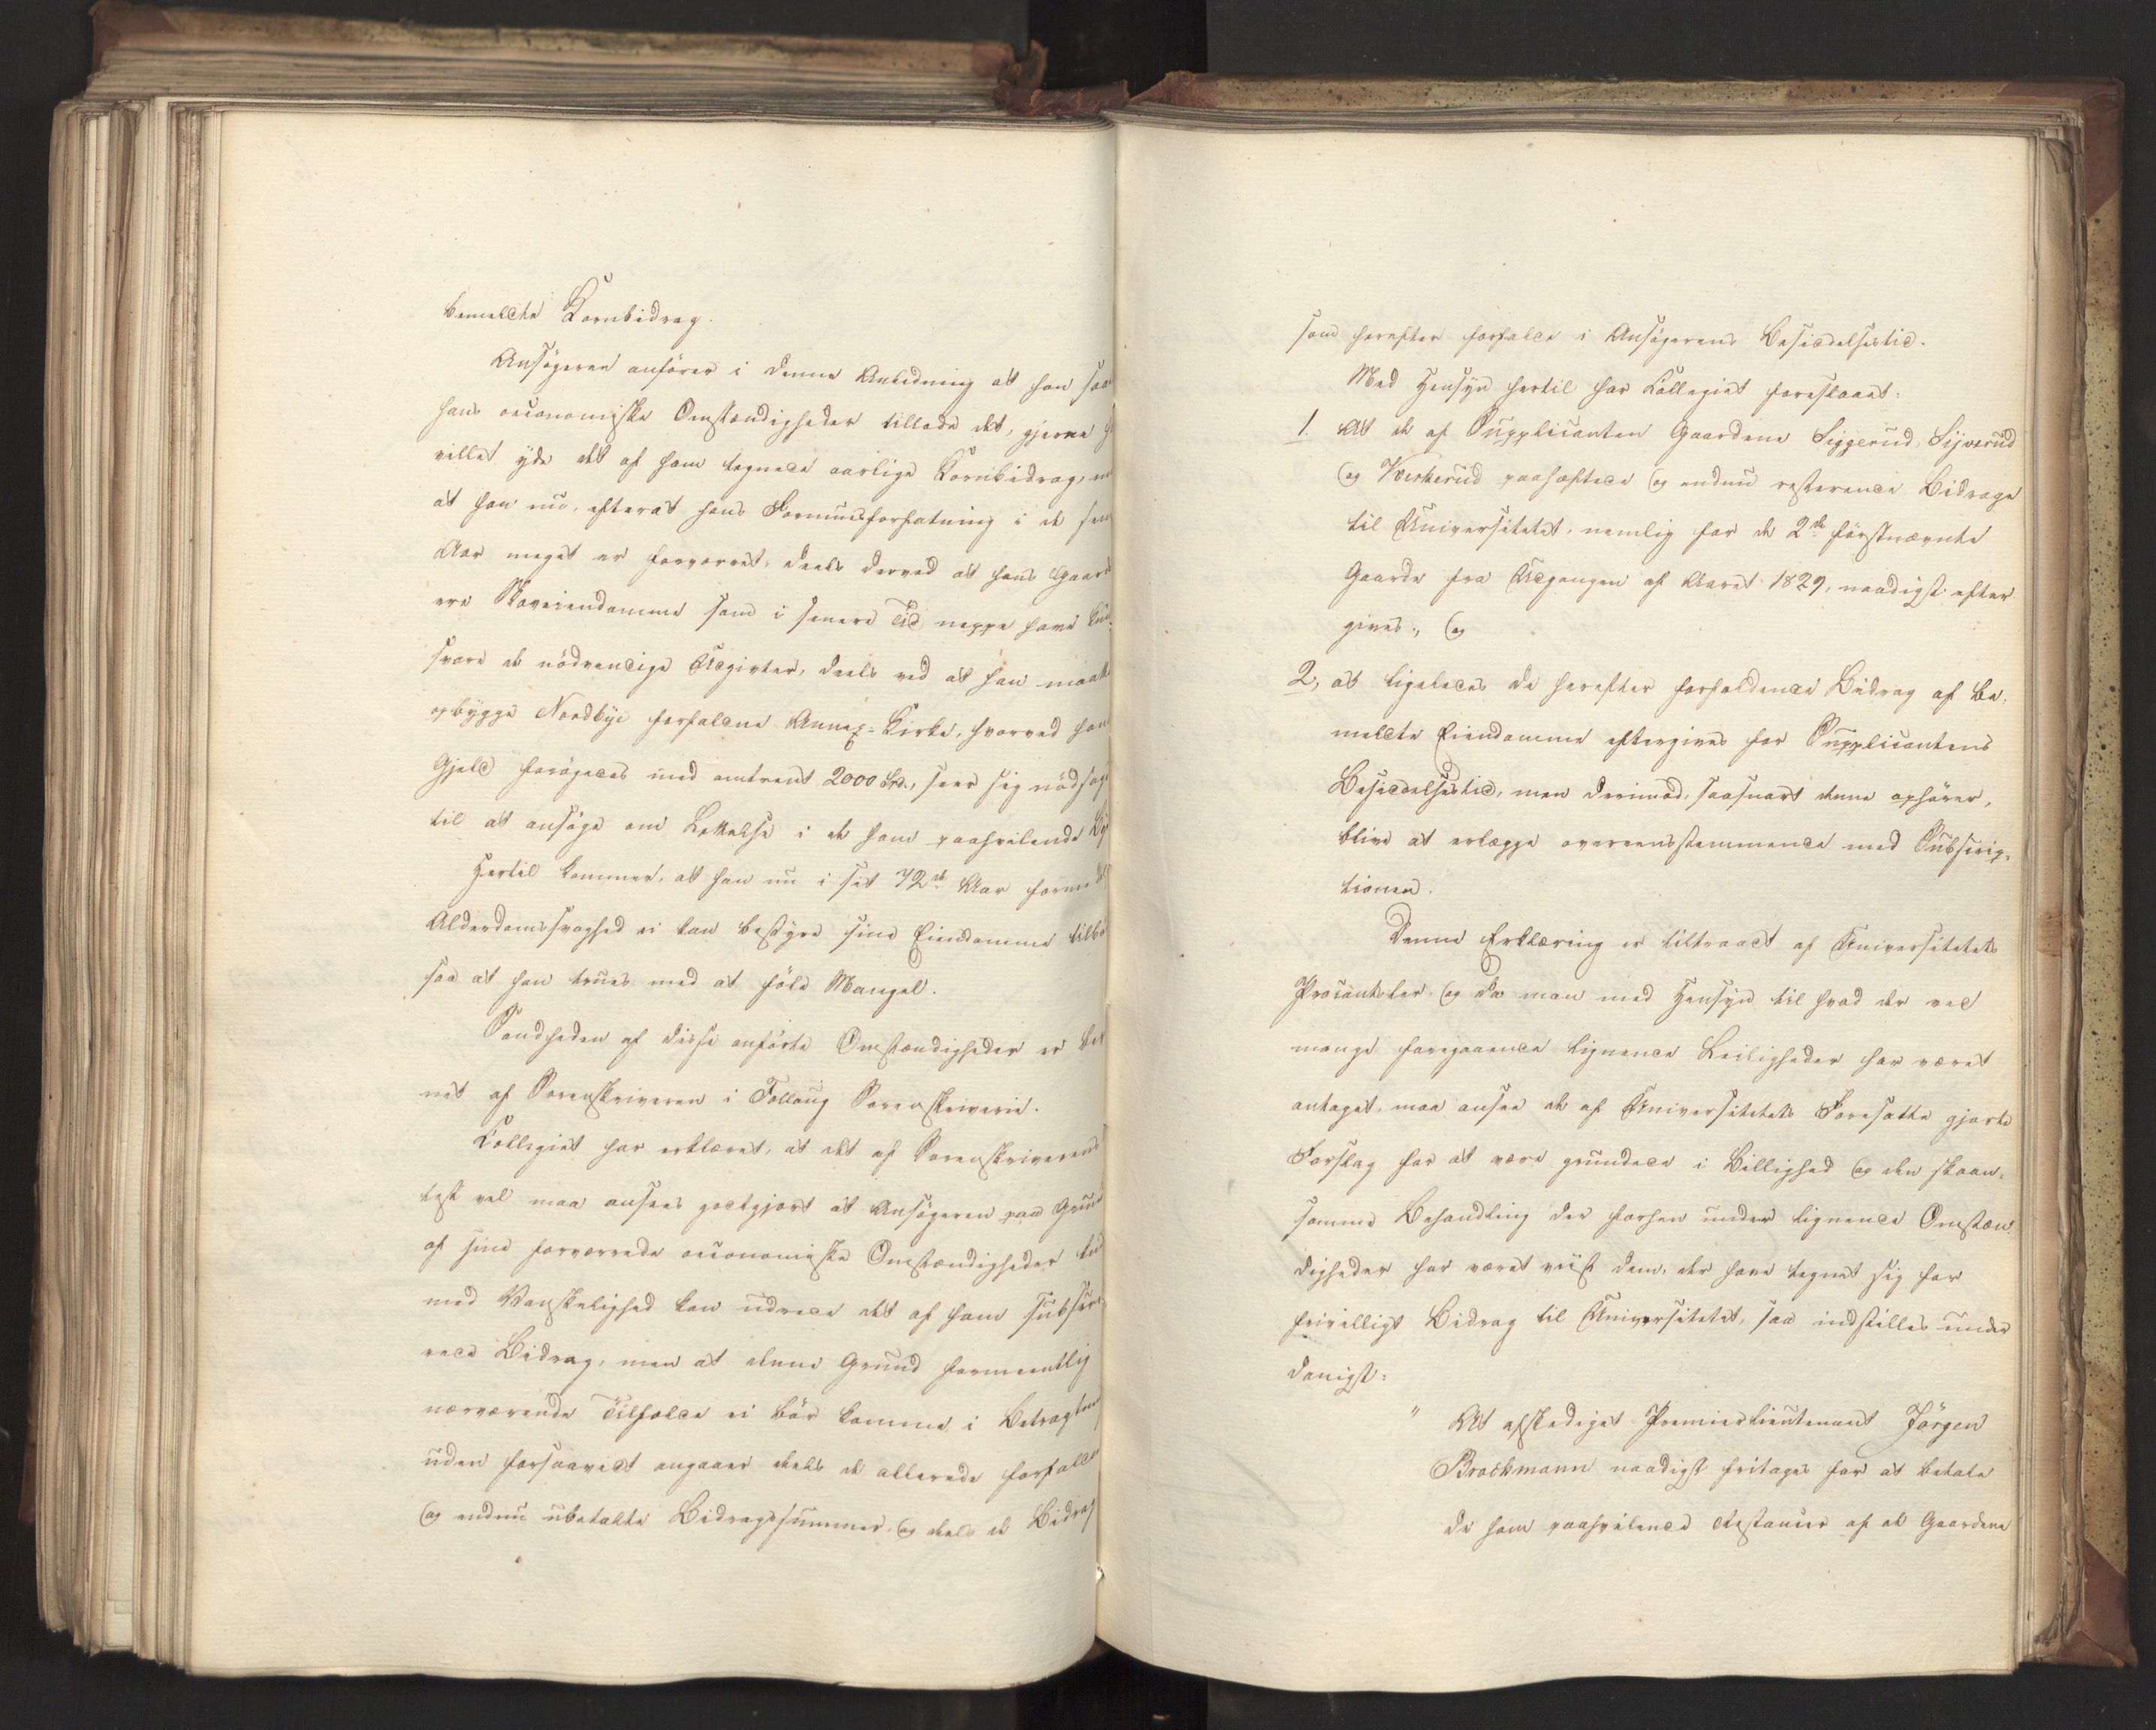 bemeldte Kornbidrag.
Ansögeren anförer i denne Anledning at han saa
hans oeconomiske Omstændigheder tillode det, gjerne
villet yde det af ham tegnede aarlige Kornbidrag,
at han nu, efterat hans Formuesforfatning i de
Aar meget er forværret, deels derved at hans Gaard
ere Skoveiendomme som i senere Tid neppe have
svare de nödvendige Udgivter, deels ved at han maatte
opbygge Nordbye forfaldne Annex-Kirke, hvorved hans
Gjeld forögedes med omtrent 2000 Spd., seer sig nödsag
til at ansöge om Lettelse i de ham paahvilende
Hertil kommer, at han nu i sit 72de Aar formedelst
Alderdomssvaghed ei kan bestyre sine Eiendomme
saa at han trues med at föle Mangel.
Sandheden af disse anförte Omstændigheder er
net af Sorenskriveren i Follaug Sorenskriverie.
Collegiet har erklæret, at det af Sorenskriverens
test vel maa ansees godtgjort at Ansögeren paa Grund
af sine forværrede oeconomiske Omstændigheder
med Vanskelighed kan udrede det af ham subscri
rede Bidrag, men at denne Grund formeentlig
nærværende Tilfælde ei bör komme i Betragtning
uden forsaavidt angaaer deels de allerede forfaldne
og endnu ubetalte Bidragssummer, og deels de Bidrag
som herefter forfalde i Ansögerens Besiddelsestid.
Med Hensyn hertil har Collegiet foreslaaet:
1. At de af Supplicanten Gaardene Siggerud, Sijverud
og Kverkerud paahæftede og endnu resterende Bidrage
til Universitetet, nemlig for de 2de förstnævnte
Gaarde fra Udgangen af Aaret 1829, naadigst efter
gives, og
2, at ligeledes de herefter forfaldende Bidrag af be-
meldte Eiendomme eftergives for Supplicantens
Besiddelsestid, men derimod, saasnart denne ophörer,
blive at erlægge overeensstemmende med Subscrip-
tionen.
Denne Erklæring er tiltraadt af Universitetets
Procantsler, og da man med Hensyn til hvad der ved
mange foregaaende lignende Leiligheder har været
antaget, maa ansee de af Universitetets Foresatte gjorte
Forslag for at være grundede i Billighed og den skaan-
somme Behandling der forhen under lignende Omstæn-
digheder har været viist dem, der have tegnet sig for
frivilligt Bidrag til Universitetet, saa indstilles under
danigst:
" At afskediget Premierlieutenant Jörgen
Brockmann naadigst fritages for at betale
de ham paahvilende Restancer af de Gaardene